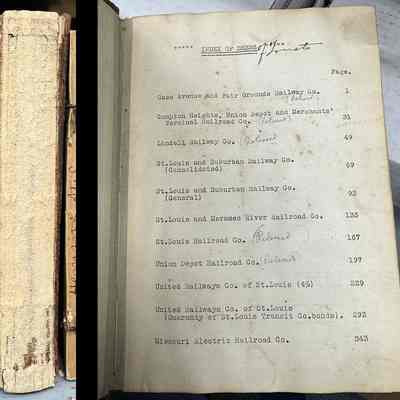 ***** INDEX OF DEEDS
Page.
Case Avenue and Fair Grounds Railway Co. 1
Compton Heights, Union Depot and Merchants'
Terminal Railroad Co. (Released) 31
Lindell Railway Co. (Released) 49
St.Louis and Suburban Railway Co.
(Consolidated) 69
St.Louis and Suburban Railway Co.
(General) 93
St.Louis and Meramec River Railroad Co. 135
St.Louis Railroad Co. (Released) 167
Union Depot Railroad Co. (Released) 197
United Railways Co. of St.Louis (4%) 229
United Railways Co. of St.Louis
(Guaranty of St.Louis Transit Co.bonds). 293
Missouri Electric Railroad Co. 343